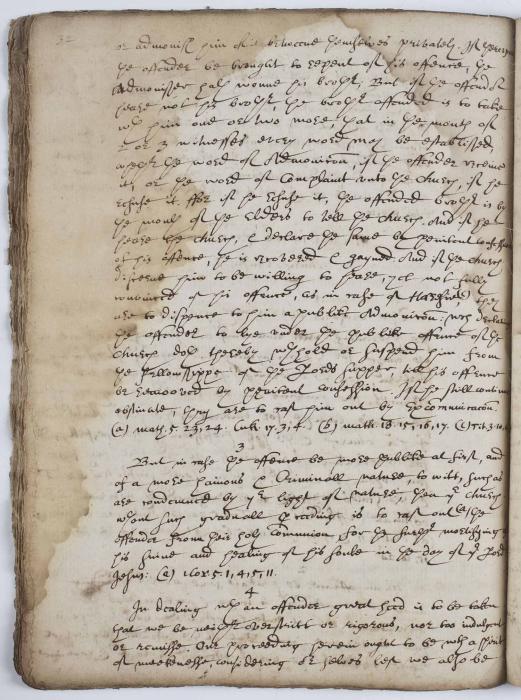 32
or admonish him of it betweene themselves privately. If thereupon
the offender be brought to repent of his offence, the
Admonisher hath wonne his brother, But if the offender
heare not his brother the brother offended is to take
wth him one or two more, that in the mouth of
2 or 3 witnesses every word may be established,
whether the word of Admonition, if the offender receive
it, or the word of Complaint unto the church, if he
refuse it. ffor if he refuse it, the offended brother is by
the mouth of the Elders to tell the church. And if he
heare the church, & declare the same by penitent confession
of his offence, he is recovered & gayned And if the church
discerne him to be willing to heare, yet not fully
convinced of his offence, as in case of Heresie, they
are to dispence to him a publike Admonition: wch declaring
the offender to lye under the publike offence of the
church doth thereby wthhold or suspend him from
the fellowshippe of the Lords Supper, till his offence
be removed by penitent confession. If he still continue
obstinate, they are to cast him out by Excommunication
(a) math. 5. 23, 24. Luk. 17. 3, 4. (b) math 18. 15, 16, 17. (c) Tit. 3. 10.
3
But in case the offence be more publike at first, and
of a more hainous & Criminall nature, to witt, such as
are condemned by ye light of nature, then ye church
wthout such graduall proceeding is to cast out the
offender from their holy Communion for the further mortifying of
his sinne and healing of his soule in the day of ye Lord
Jesus: (a) 1 Cor 5. 1, 4, 5, 11.
4
In dealing wth an offender great heed is to be taken
that we be neither overstrict or rigorous, nor too indulgent
or remisse. Our proceeding herein ought to be wth a spirit
of meekenesse, considering or selves lest we also be